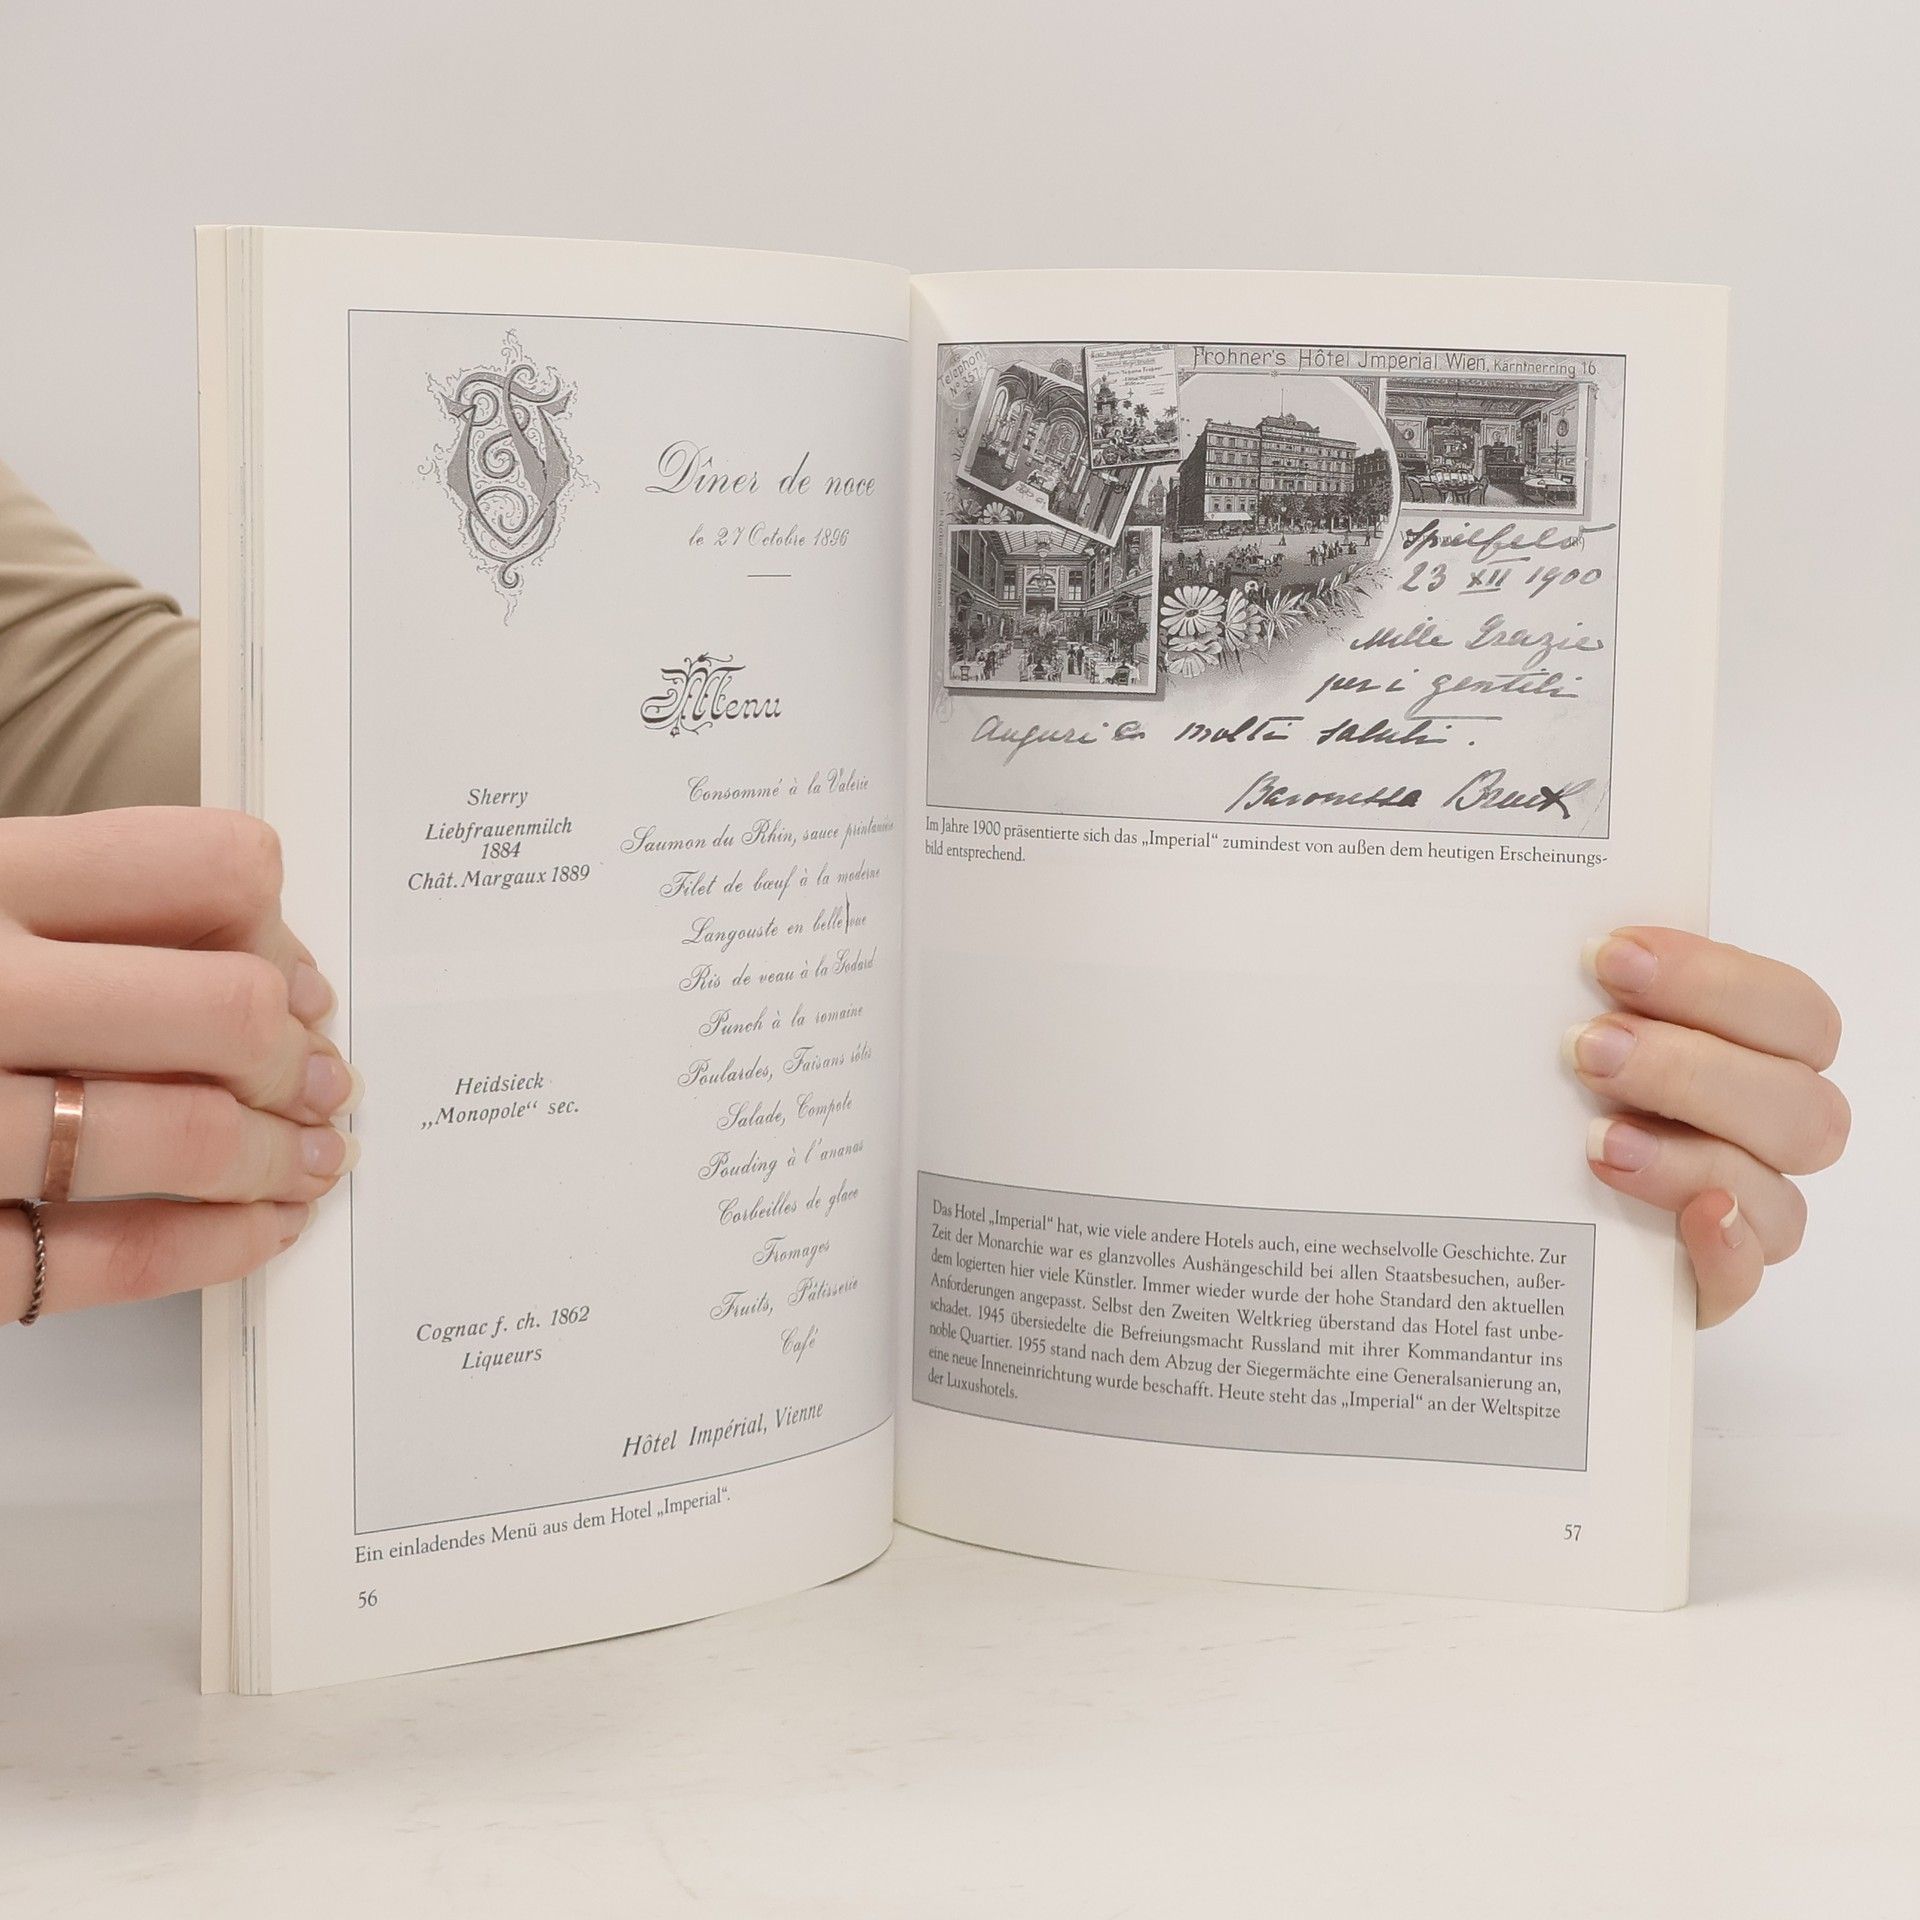 Dîner de noce
le 27 Octobre 1896
Menu
Sherry
Liebfrauenmilch
1884
Chât. Margaux 1889
Heidsieck
„Monopole“ sec.
Cognac f. ch. 1862
Liqueurs
Consommé à la Valerie
Saumon du Rhin, sauce printanière
Filet de bœuf à la moderne
Langouste en belle vue
Ris de veau à la Godard
Punch à la romaine
Poulardes, Faisans rôtis
Salade, Compote
Pouding à l'ananas
Corbeilles de glace
Fromages
Fruits, Pâtisserie
Café
Hôtel Impérial, Vienne
Ein einladendes Menü aus dem Hotel „Imperial“.
56
Telephon
No 357
Frohner's Hôtel Jmperial Wien, Kärntnerring 16.
Spielfeld
23 XII 1900
Mille Grazie
per i gentili
Auguri e molti saluti.
Baronessa Bruck
Im Jahre 1900 präsentierte sich das „Imperial“ zumindest von außen dem heutigen Erscheinungs-
bild entsprechend.
Das Hotel „Imperial“ hat, wie viele andere Hotels auch, eine wechselvolle Geschichte. Zur
Zeit der Monarchie war es glanzvolles Aushängeschild bei allen Staatsbesuchen, außer-
dem logierten hier viele Künstler. Immer wieder wurde der hohe Standard den aktuellen
Anforderungen angepasst. Selbst den Zweiten Weltkrieg überstand das Hotel fast unbe-
schadet. 1945 übersiedelte die Befreiungsmacht Russland mit ihrer Kommandantur ins
noble Quartier. 1955 stand nach dem Abzug der Siegermächte eine Generalsanierung an,
eine neue Inneneinrichtung wurde beschafft. Heute steht das „Imperial“ an der Weltspitze
der Luxushotels.
57